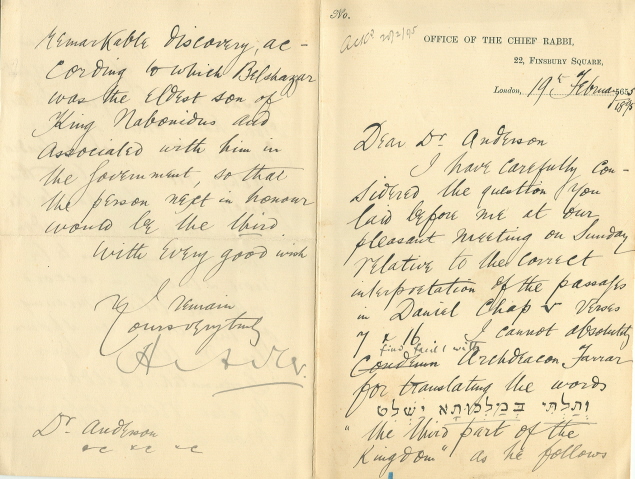 No.
Ackd 20/2/95
OFFICE OF THE CHIEF RABBI,
22, FINSBURY SQUARE,
London, 19th February 5655
1895
Dear Dr. Anderson
I have carefully con-
sidered the question you
laid before me at our
pleasant meeting on Sunday
relative to the correct
interpretation of the passages
in Daniel Chap v verses
7 & 16. I cannot absolutely
find fault with
Condemn Archdeacon Farrar
for translating the words
וְתַלְתִּי בְמַלְכוּתָא ישלט
"the third part of the
Kingdom" as he follows
remarkable discovery, ac-
cording to which Belshazzar
was the eldest son of
King Nabonidus and
associated with him in
the Government, so that
the person next in honour
would be the third.
With every good wish
I remain
Yours very truly
H Adler.
Dr. Anderson
&c &c &c